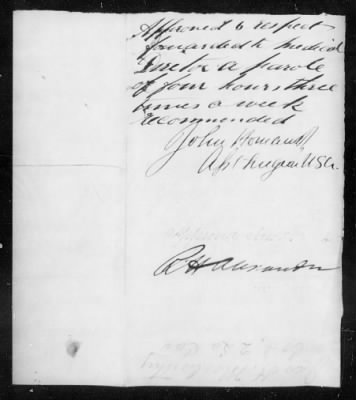 Approved & respect
forwarded to medical
Director a parole
of four hours three
times a week
recommended
John
Ast Surgeon USA
R H Alexander